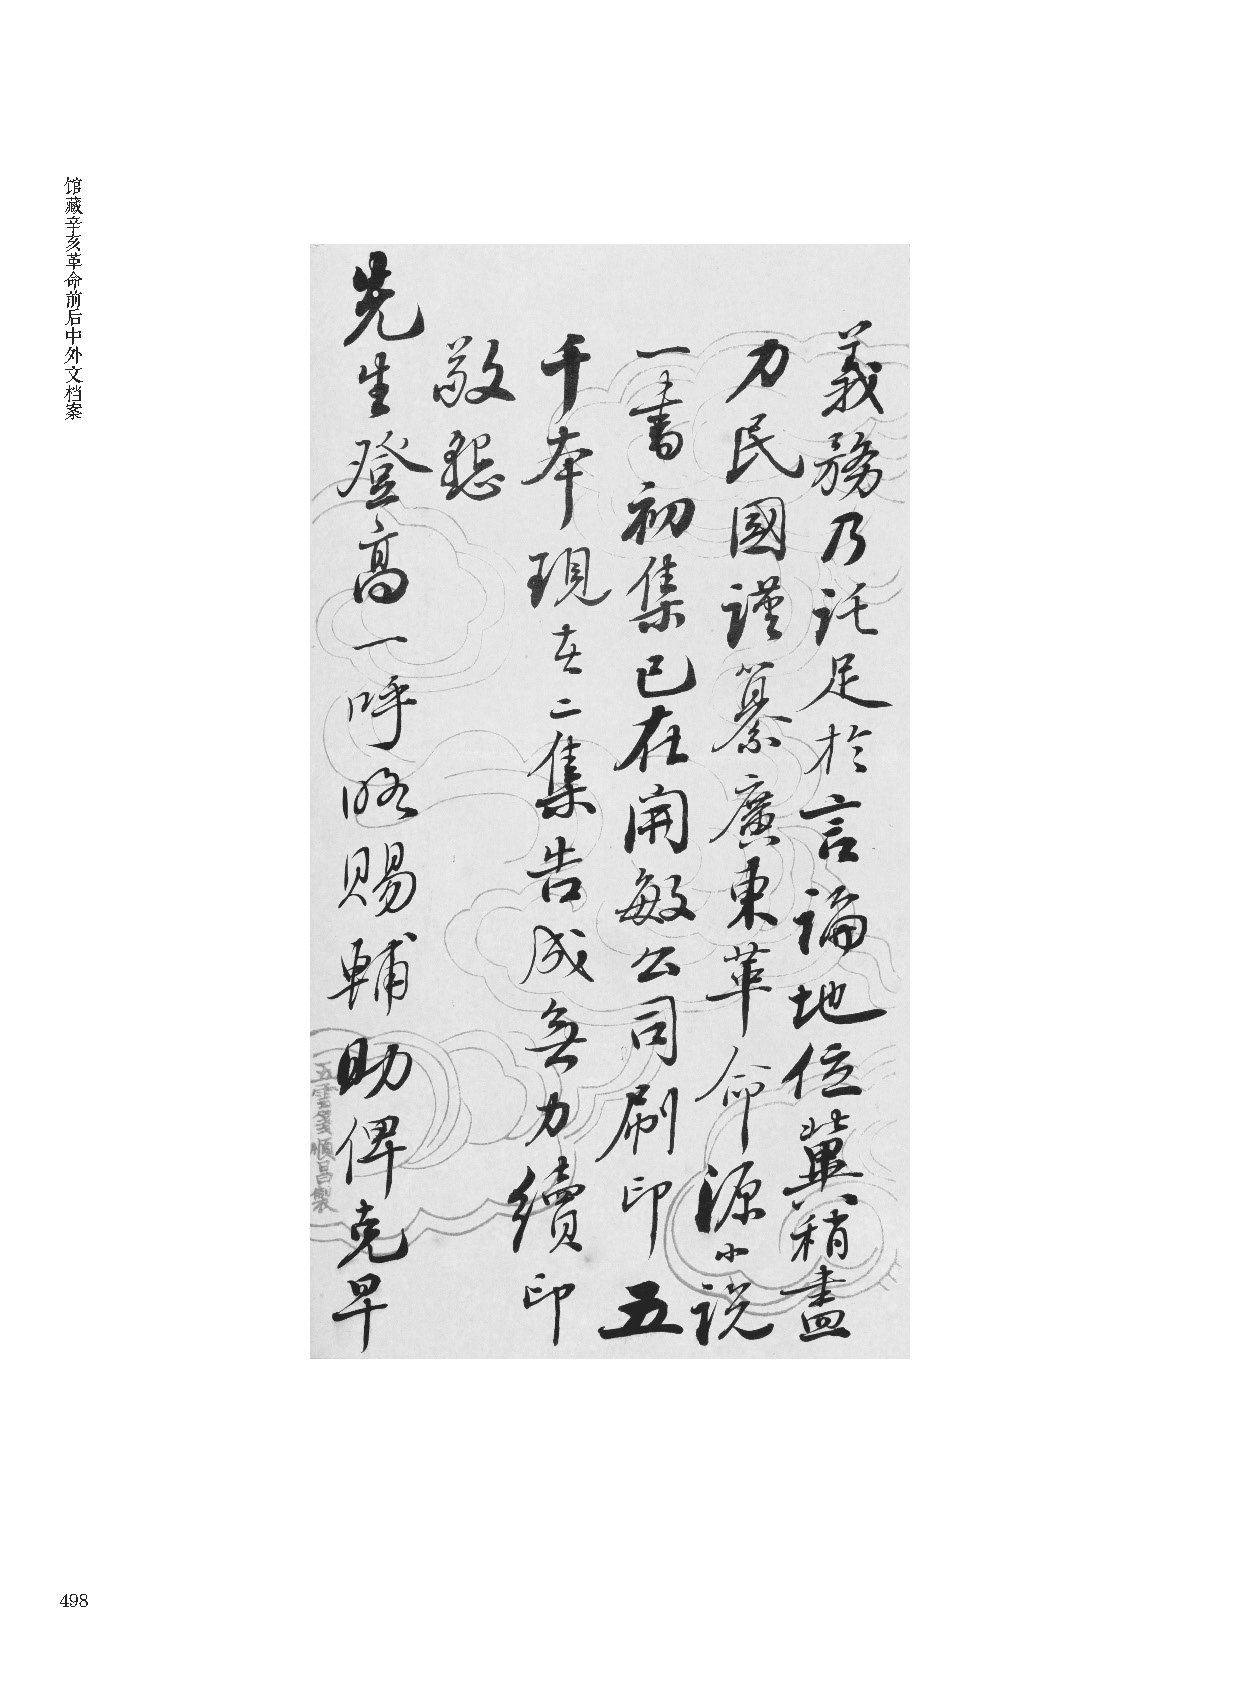 馆藏辛亥革命前后中外文档案
義務乃託足於言論地位冀稍盡
力民國謹纂廣東革命源小説
一書初集已在開敏公司刷印五
千本現在二集告成無力續印
敬懇
先生登高一呼略賜輔助俾克早
五雲箋順昌製
498